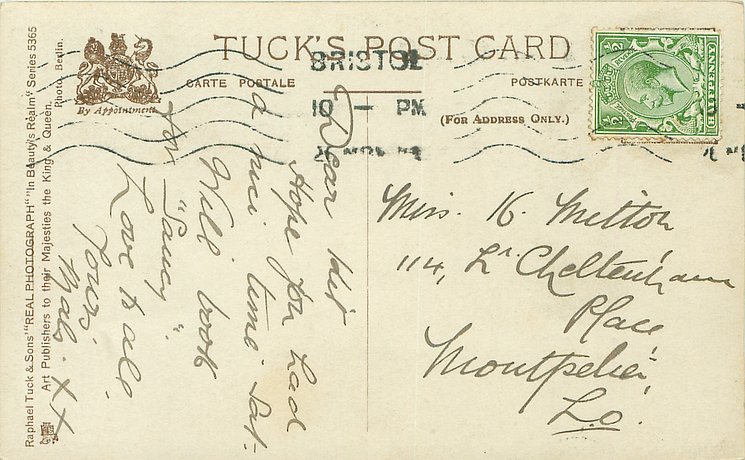 TUCK'S POST CARD
CARTE POSTALE
POSTKARTE
(FOR ADDRESS ONLY.)
By Appointment
BRISTOL
10 - PM
NOV
½ ½
HALFPENNY
Raphael Tuck & Sons' "REAL PHOTOGRAPH" "In Beauty's Realm" Series 5365
Art Publishers to their Majesties the King & Queen.
Photo Berlin.
Dear Kit
Hope you had
a nice time Sat-
Will book
for "Saucy"
Love to all.
Yours.
Mab. x x
Miss. K. Mitton
114, Lr Cheltenham
Place
Montpelier,
Lo.